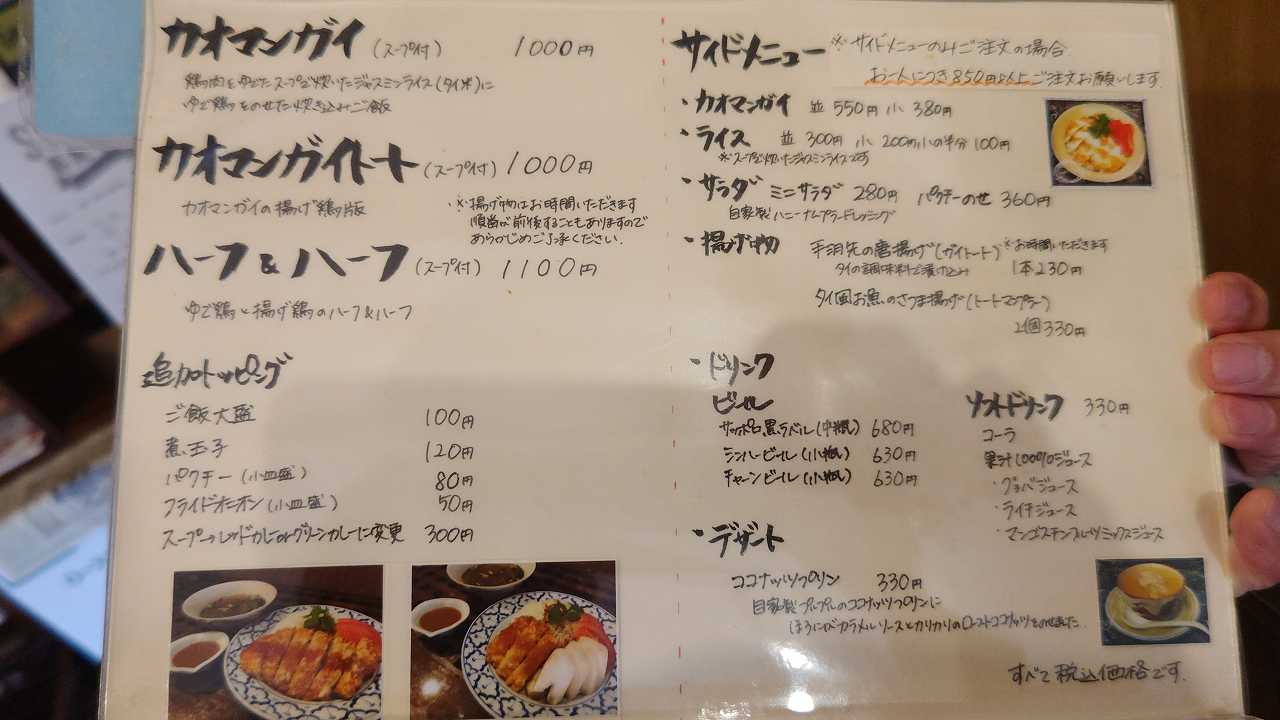 カオマンガイ(スープ付) 1000円
鶏肉をゆでたスープで炊いたジャスミンライス(タイ米)に
ゆで鶏をのせた炊き込みご飯
カオマンガイトート(スープ付) 1000円
カオマンガイの揚げ鶏版
※揚げ物はお時間いただきます
順番が前後することもありますので
あらかじめご了承ください.
ハーフ&ハーフ(スープ付) 1100円
ゆで鶏と揚げ鶏のハーフ&ハーフ
追加トッピング
ご飯大盛 100円
煮玉子 120円
パクチー(小皿盛) 80円
フライドオニオン(小皿盛) 50円
スープ→レッドカレーorグリーンカレーに変更 300円
サイドメニュー
※サイドメニューのみご注文の場合
お一人につき850円以上ご注文お願いします
・カオマンガイ 並 550円 小 380円
・ライス 並 300円 小 200円 小の半分 100円
※スープで炊いたジャスミンライスです
・サラダ ミニサラダ 280円 パクチーのせ 360円
自家製ハニーナムプラードレッシング
・揚げ物 手羽先の唐揚げ(ガイトート) ※お時間いただきます
タイの調味料で漬け込み 1本230円
タイ風お魚のさつま揚げ(トートマンプラー)
2個330円
・ドリンク
ビール
サッポロ黒ラベル(中瓶) 680円
シンハービール(小瓶) 630円
チャーンビール(小瓶) 630円
ソフトドリンク 330円
コーラ
果汁100%ジュース
・グァバジュース
・ライチジュース
・マンゴスチンフルーツミックスジュース
・デザート
ココナッツプリン 330円
自家製プルプルのココナッツプリンに
ほろにがカラメルソースとカリカリのローストココナッツをのせました.
すべて税込価格です.